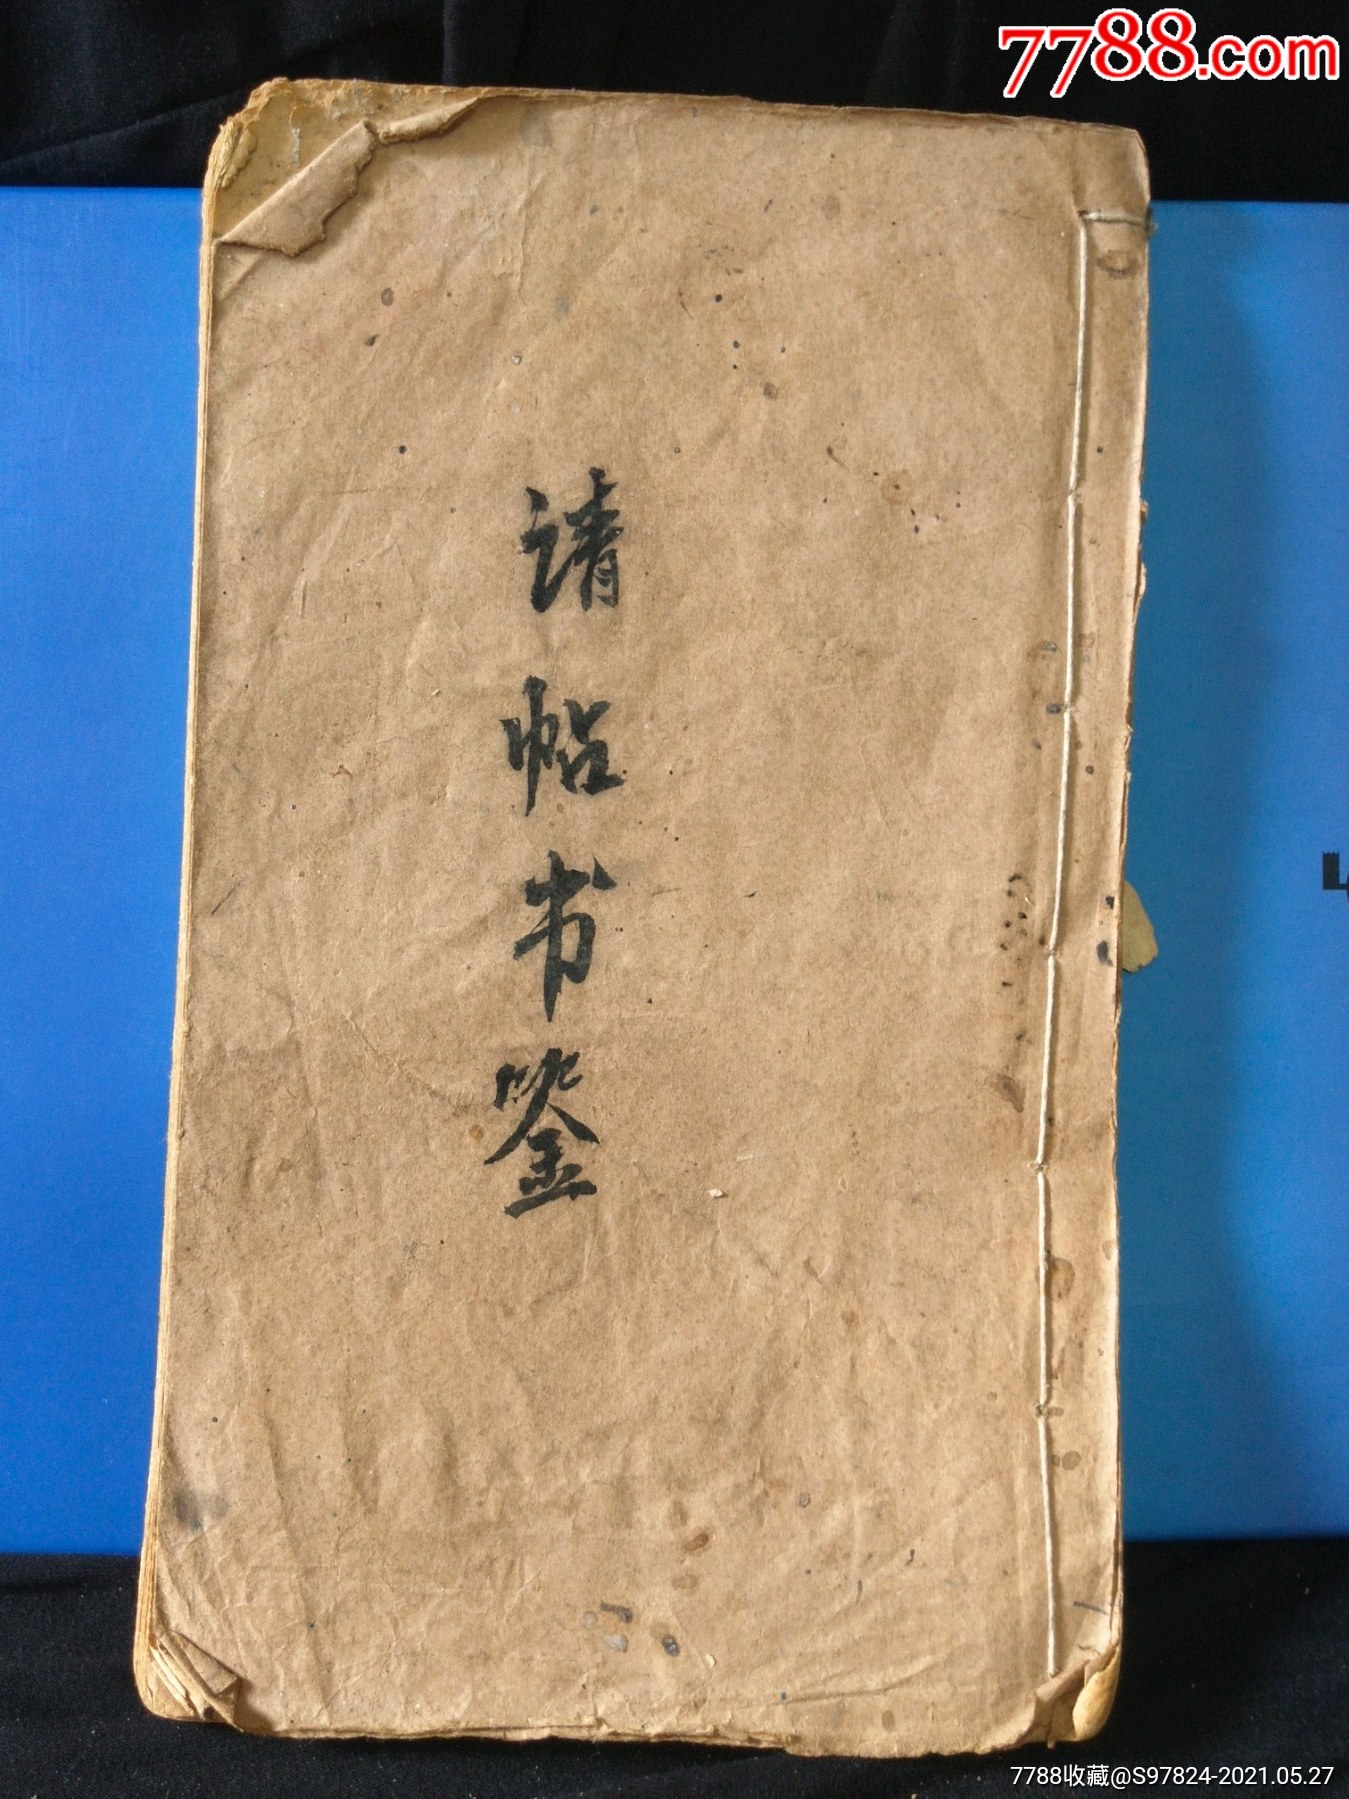 7788.com
请帖书鉴
7788收藏@S97824-2021.05.27